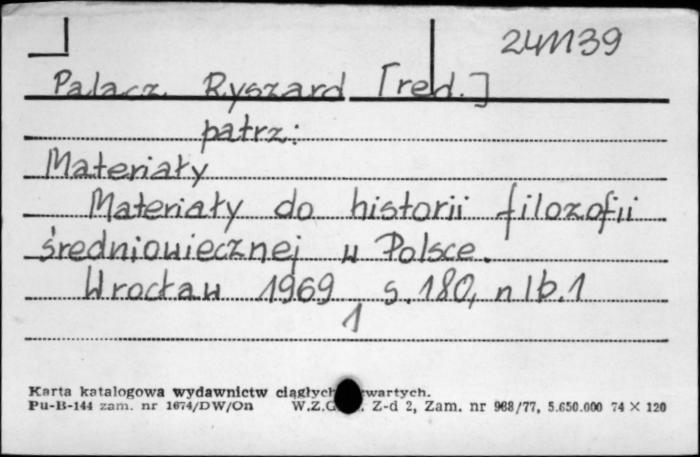 24M139
Palacz Ryszard [red.]
patrz:
Materiały
Materiały do historii filozofii
średniowiecznej w Polsce.
Wrocław 1969 s. 180, nlb. 1
1
Karta katalogowa wydawnictw ciągłych
Pu-B-144 zam. nr 1674/DW/On W.Z.G. Z-d 2, Zam. nr 968/77, 5.650.000 74 × 120